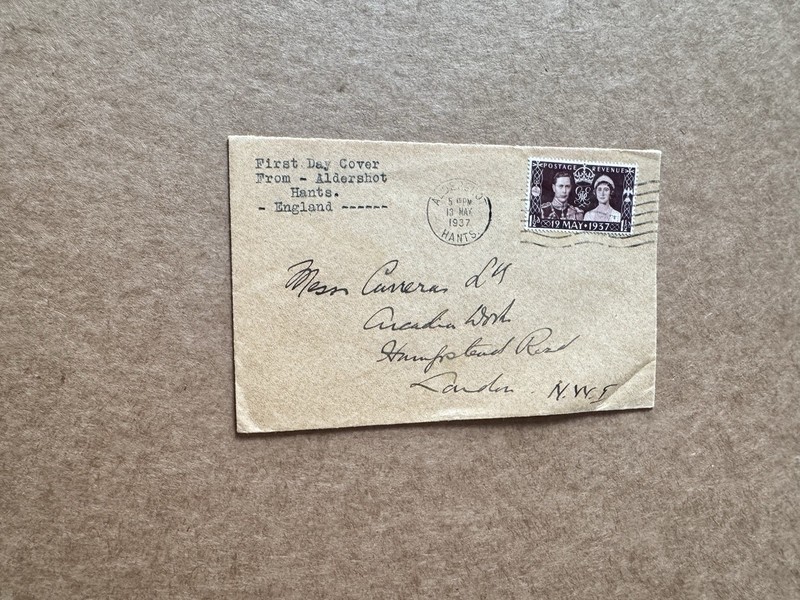 First Day Cover
From - Aldershot
Hants.
- England ------
ALDERSHOT
5 PM
13 MAY
1937
HANTS.
POSTAGE REVENUE
1½D 19 MAY · 1937 1½D
Messrs Carreras Ltd
Arcadia Works
Hampstead Road
London. N.W.1